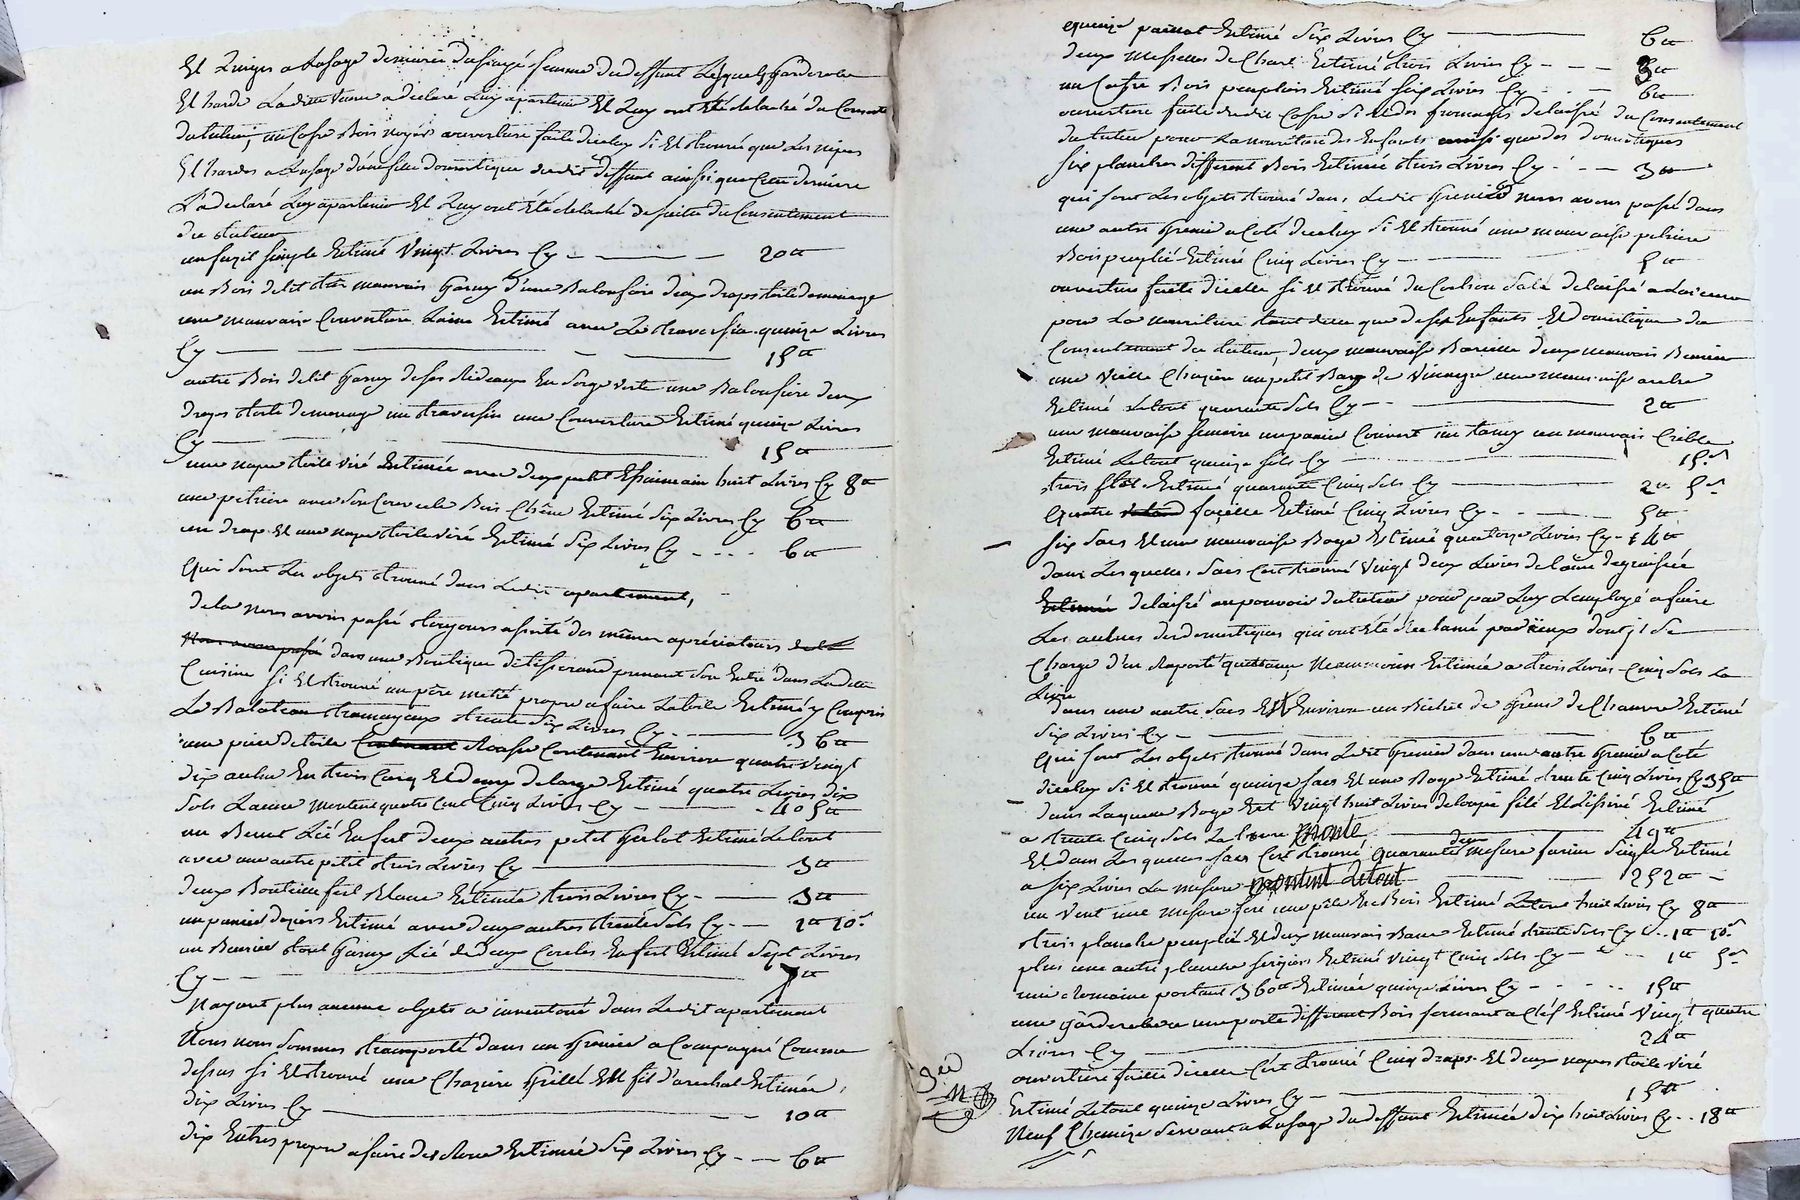 Et Linges a Lusage derniere du sixgé femme du deffunt Lesquels Garderobe
Et harde Laditte veuve a declaré Luy apartenir Et Luy ont Eté delaissé du Consente
du tuteur, un Cofre Bois noyer ouverture faite dicelui Si Et trouvé que Les nipes
Et hardes a Lusage d'une fille domestique dudit deffunt ainsi que Cette derniere
L'a declaré Luy apartenir Et Luy ont Eté delaissé de suitte du Consentement
du tuteur
un fuzil simple Estimé Vingt Livres Cy — 20tt
un Bois de lit tres mauvais Garny d'une Baloufiere deux draps toile de menage
une mauvaise Couverture Laine Estimé avec Le traversin quinze Livres
Cy — 15tt
autre Bois delit Garny de ses Rideaux En Serge verte une Baloufiere deux
draps toile de menage un traversin une Couverture Estimé quinze Livres
Cy — 15tt
une nape toile viré Estimée avec deux petit Essuimain huit Livres Cy 8tt
une petriere avec son Couvercle Bois Chêne Estimé Six Livres Cy 6tt
un drap Et une nape toile viré Estimé Six Livres Cy - - - 6tt
Qui sont Les objets trouvé dans Ledit apartement,
de la nous avons passé toujours assisté des mêmes apréciateurs de la
Nous avons passé dans une Boutique de tisserand prenant son Entré dans Laditte
Cuisine Si Et trouvé un metié propre a faire La toile Estimé y Compris
Le trente Six Livres Cy — 36tt
une piece de toile Contenant Contenant Environ quatre Vingt
dix aulne En trois Cars Et demy de large Estimé quatre Livres dix
Sols Laune montent quatre Cent Cinq Livres Cy — 405tt
un Benot Lié En fert deux autres petit Gerlot Estimé Letout
avec une autre petit trois Livres Cy — 3tt
deux Bouteille feil Blanc Estimée trois Livres Cy — 3tt
un panier Estimé avec deux autres trente Sols Cy — 1tt 10s
un Benier tout Garny Lié de deux Cercles En fert Estimé Sept Livres
Cy — 7tt
Nayant plus aucune objets a inventorié dans Ledit apartement
Nous nous Sommes transporté dans un Grenier a Compagné Comme
dessus Si Et trouvé une Chaziere Grillé En fil d'archal Estimée
dix Livres Cy — 10tt
dix propre a faire des Estimée Six Livres Cy — 6tt
quinze Estimé Six Livres Cy — 6tt
deux de Chars Estimé trois Livres Cy - - - 3tt
un Cofre Bois peuplier Estimé Six Livres Cy - - - 6tt
ouverture faite dudit Cofre Si Et des fromages delaissé du Consentement
du tuteur pour La nourriture des Enfants ainsi que des domestiques
Six planches different Bois Estimée trois Livres Cy - - - 3tt
qui sont Les objets trouvé dans Ledit Grenier nous avons passé dans
une autre Grenier a Coté dicelui Si Et trouvé une mauvaise petriere
Bois peuplié Estimé Cinq Livres Cy — 5tt
ouverture faite dicelle Si Et trouvé du Cochon Salé delaissé
pour La nourriture tant que de ses Enfants Et domestique du
Consentement du tuteur, deux mauvaise deux mauvais Benier
une Vielle Chaziere un petit de Vinaigre une mauvaise
Estimé Letout quarante Sols Cy — 2tt
une mauvaise un panier Couvert un un mauvais Crible
Estimé Letout quinze Sols Cy — 15s
trois Estimé quarante Cinq Sols Cy — 2tt 5s
Quatre façelle Estimé Cinq Livres Cy - - — 5tt
Six Sacs Et une mauvaise Boge Estimé quatorze Livres Cy - 14tt
dans Lesquelles Sacs Cest trouvé Vingt deux Livres de laine degraissée
Estimée delaissé au pouvoir du tuteur pour par Luy L'employé a faire
Les aubues des domestiques qui ont Eté reclamé par ceux dont jl Se
Charge d'en Raporté quittance Neanmoins Estimée a trois Livres Cinq Sols La
Livre
dans une autre Sacs Est Environ un Bichet de Grene de Chanvre Estimé
Six Livres Cy — 6tt
Qui sont Les objets trouvé dans Ledit Grenier dans une autre Grenier a Coté
dicelui Si Et trouvé quinze Sacs Et une Boge Estimé trente Cinq Livres Cy 35tt
dans Laquelle Boge Est Vingt huit Livres filé Et Estimé
a trente Cinq Sols La Livre monte — 49tt
Et dans Lesquels Sacs Cest trouvé quarante deux mesure farine Seigle Estimé
a Six Livres La mesure montent Letout — 252tt
un Vent une Mesure une En Bois Estimé huit Livres Cy 8tt
trois planche peuplié Et deux mauvais Banc Estimé trente Sols Cy - 1tt 10s
plus une autre planche Estimé Vingt Cinq Sols Cy - - 1tt 5s
une Romaine portant 360tt Estimée quinze Livres Cy - - - - 15tt
une Garderobe a une porte different Bois fermant a Clef Estimé Vingt quatre
Livres Cy — 24tt
ouverture faitte dicelle Cest trouvé Cinq draps Et deux napes toile viré
Estimé Letout quinze Livres Cy — 15tt
Neuf Chemise Servant a Lusage du deffunt Estimée dix huit Livres Cy - 18tt